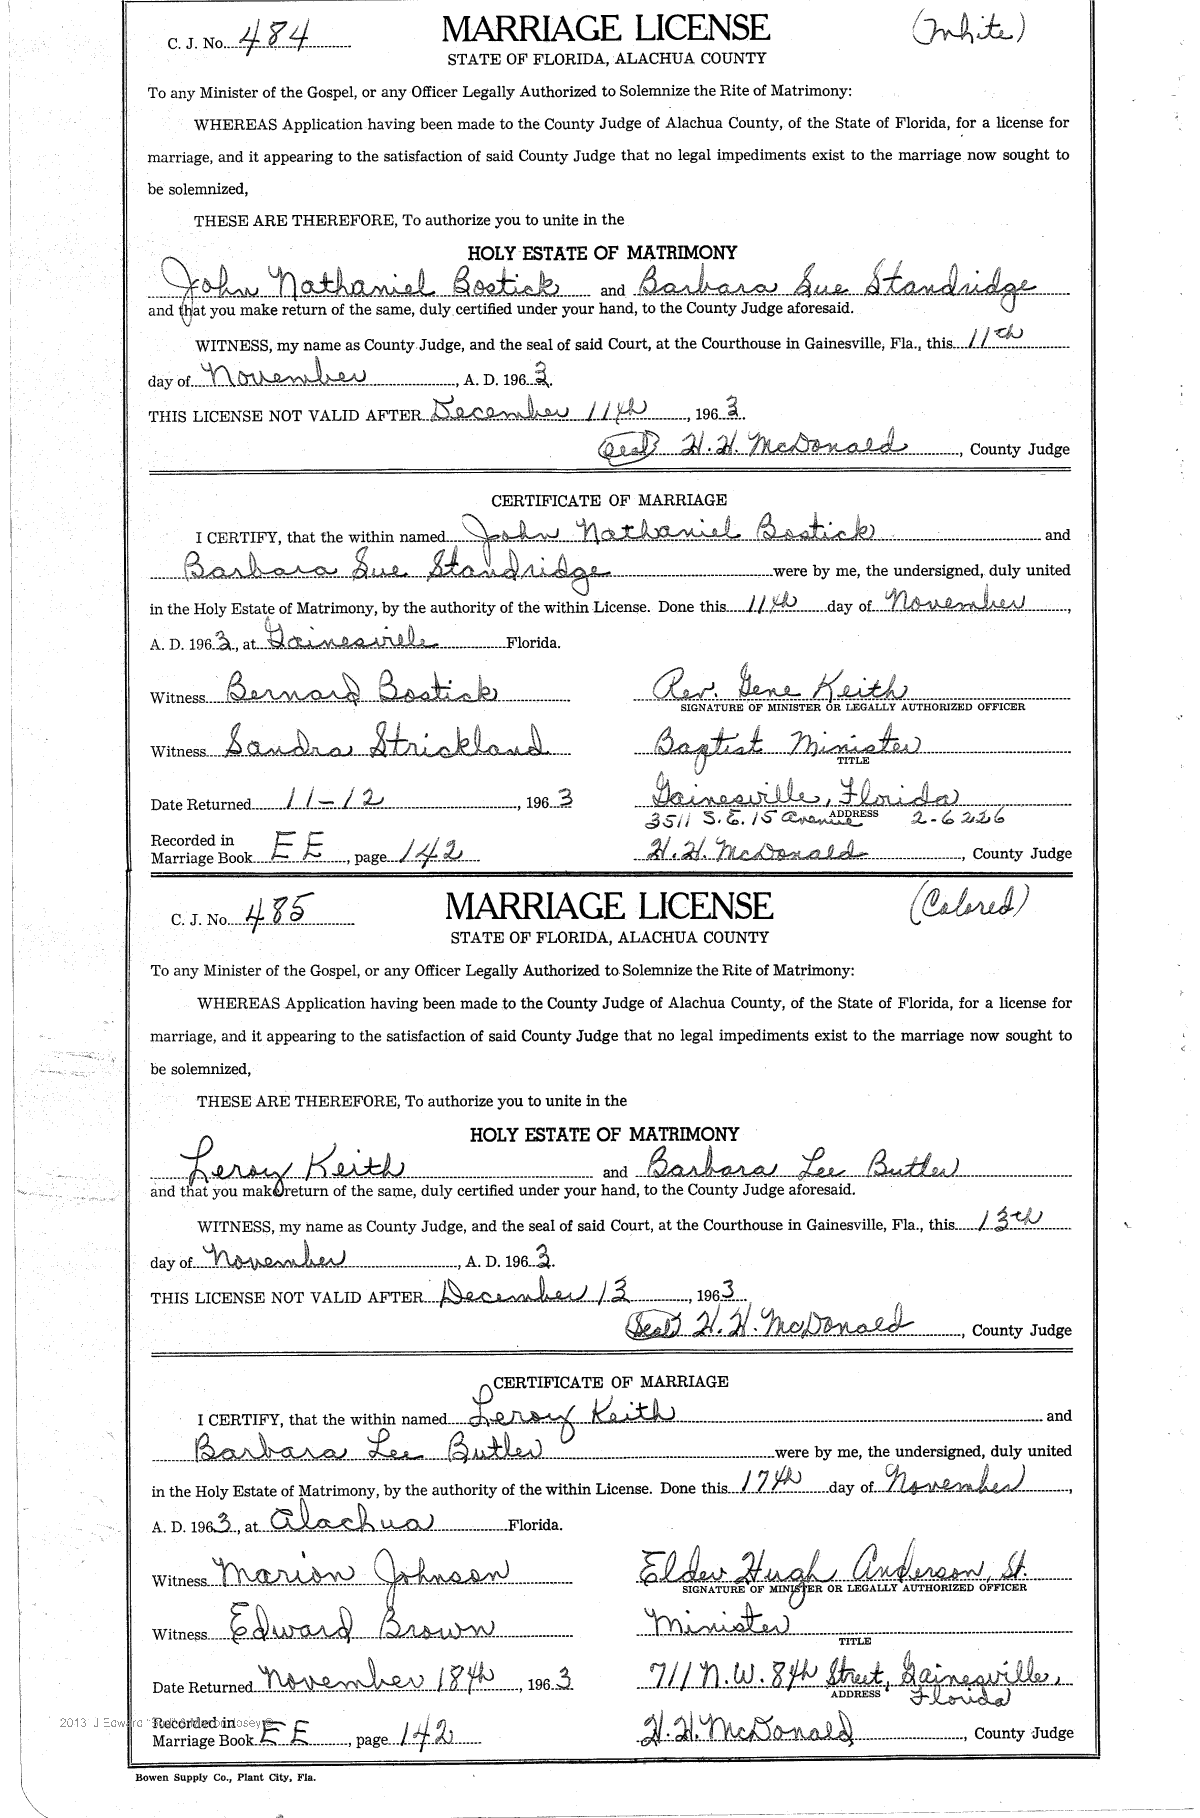 C. J. No. 484 MARRIAGE LICENSE (White)
STATE OF FLORIDA, ALACHUA COUNTY
To any Minister of the Gospel, or any Officer Legally Authorized to Solemnize the Rite of Matrimony:
WHEREAS Application having been made to the County Judge of Alachua County, of the State of Florida, for a license for
marriage, and it appearing to the satisfaction of said County Judge that no legal impediments exist to the marriage now sought to
be solemnized,
THESE ARE THEREFORE, To authorize you to unite in the
HOLY ESTATE OF MATRIMONY
John Nathaniel Bostick and Barbara Sue Standridge
and that you make return of the same, duly certified under your hand, to the County Judge aforesaid.
WITNESS, my name as County Judge, and the seal of said Court, at the Courthouse in Gainesville, Fla., this 11th
day of November, A. D. 1963.
THIS LICENSE NOT VALID AFTER December 11th, 1963.
(Seal) H. H. McDonald, County Judge
CERTIFICATE OF MARRIAGE
I CERTIFY, that the within named John Nathaniel Bostick and
Barbara Sue Standridge were by me, the undersigned, duly united
in the Holy Estate of Matrimony, by the authority of the within License. Done this 11th day of November,
A. D. 1963, at Gainesville Florida.
Witness Bernard Bostick Rev. Gene Keith
SIGNATURE OF MINISTER OR LEGALLY AUTHORIZED OFFICER
Witness Sandra Strickland Baptist Minister
TITLE
Date Returned 11-12, 1963 Gainesville, Florida
3511 S.E. 15 Avenue ADDRESS 2-6226
Recorded in
Marriage Book EE, page 142 H. H. McDonald, County Judge
C. J. No. 485 MARRIAGE LICENSE (Colored)
STATE OF FLORIDA, ALACHUA COUNTY
To any Minister of the Gospel, or any Officer Legally Authorized to Solemnize the Rite of Matrimony:
WHEREAS Application having been made to the County Judge of Alachua County, of the State of Florida, for a license for
marriage, and it appearing to the satisfaction of said County Judge that no legal impediments exist to the marriage now sought to
be solemnized,
THESE ARE THEREFORE, To authorize you to unite in the
HOLY ESTATE OF MATRIMONY
Leroy Keith and Barbara Lee Butler
and that you make return of the same, duly certified under your hand, to the County Judge aforesaid.
WITNESS, my name as County Judge, and the seal of said Court, at the Courthouse in Gainesville, Fla., this 13th
day of November, A. D. 1963.
THIS LICENSE NOT VALID AFTER December 13, 1963
(Seal) H. H. McDonald, County Judge
CERTIFICATE OF MARRIAGE
I CERTIFY, that the within named Leroy Keith and
Barbara Lee Butler were by me, the undersigned, duly united
in the Holy Estate of Matrimony, by the authority of the within License. Done this 17th day of November,
A. D. 1963, at Alachua Florida.
Witness Marion Johnson Elder Hugh Anderson, Sr.
SIGNATURE OF MINISTER OR LEGALLY AUTHORIZED OFFICER
Witness Edward Brown Minister
TITLE
Date Returned November 18th, 1963 711 N.W. 8th Street, Gainesville,
ADDRESS Florida
2013 J Edward
Recorded in
Marriage Book EE, page 142 H. H. McDonald, County Judge
Bowen Supply Co., Plant City, Fla.